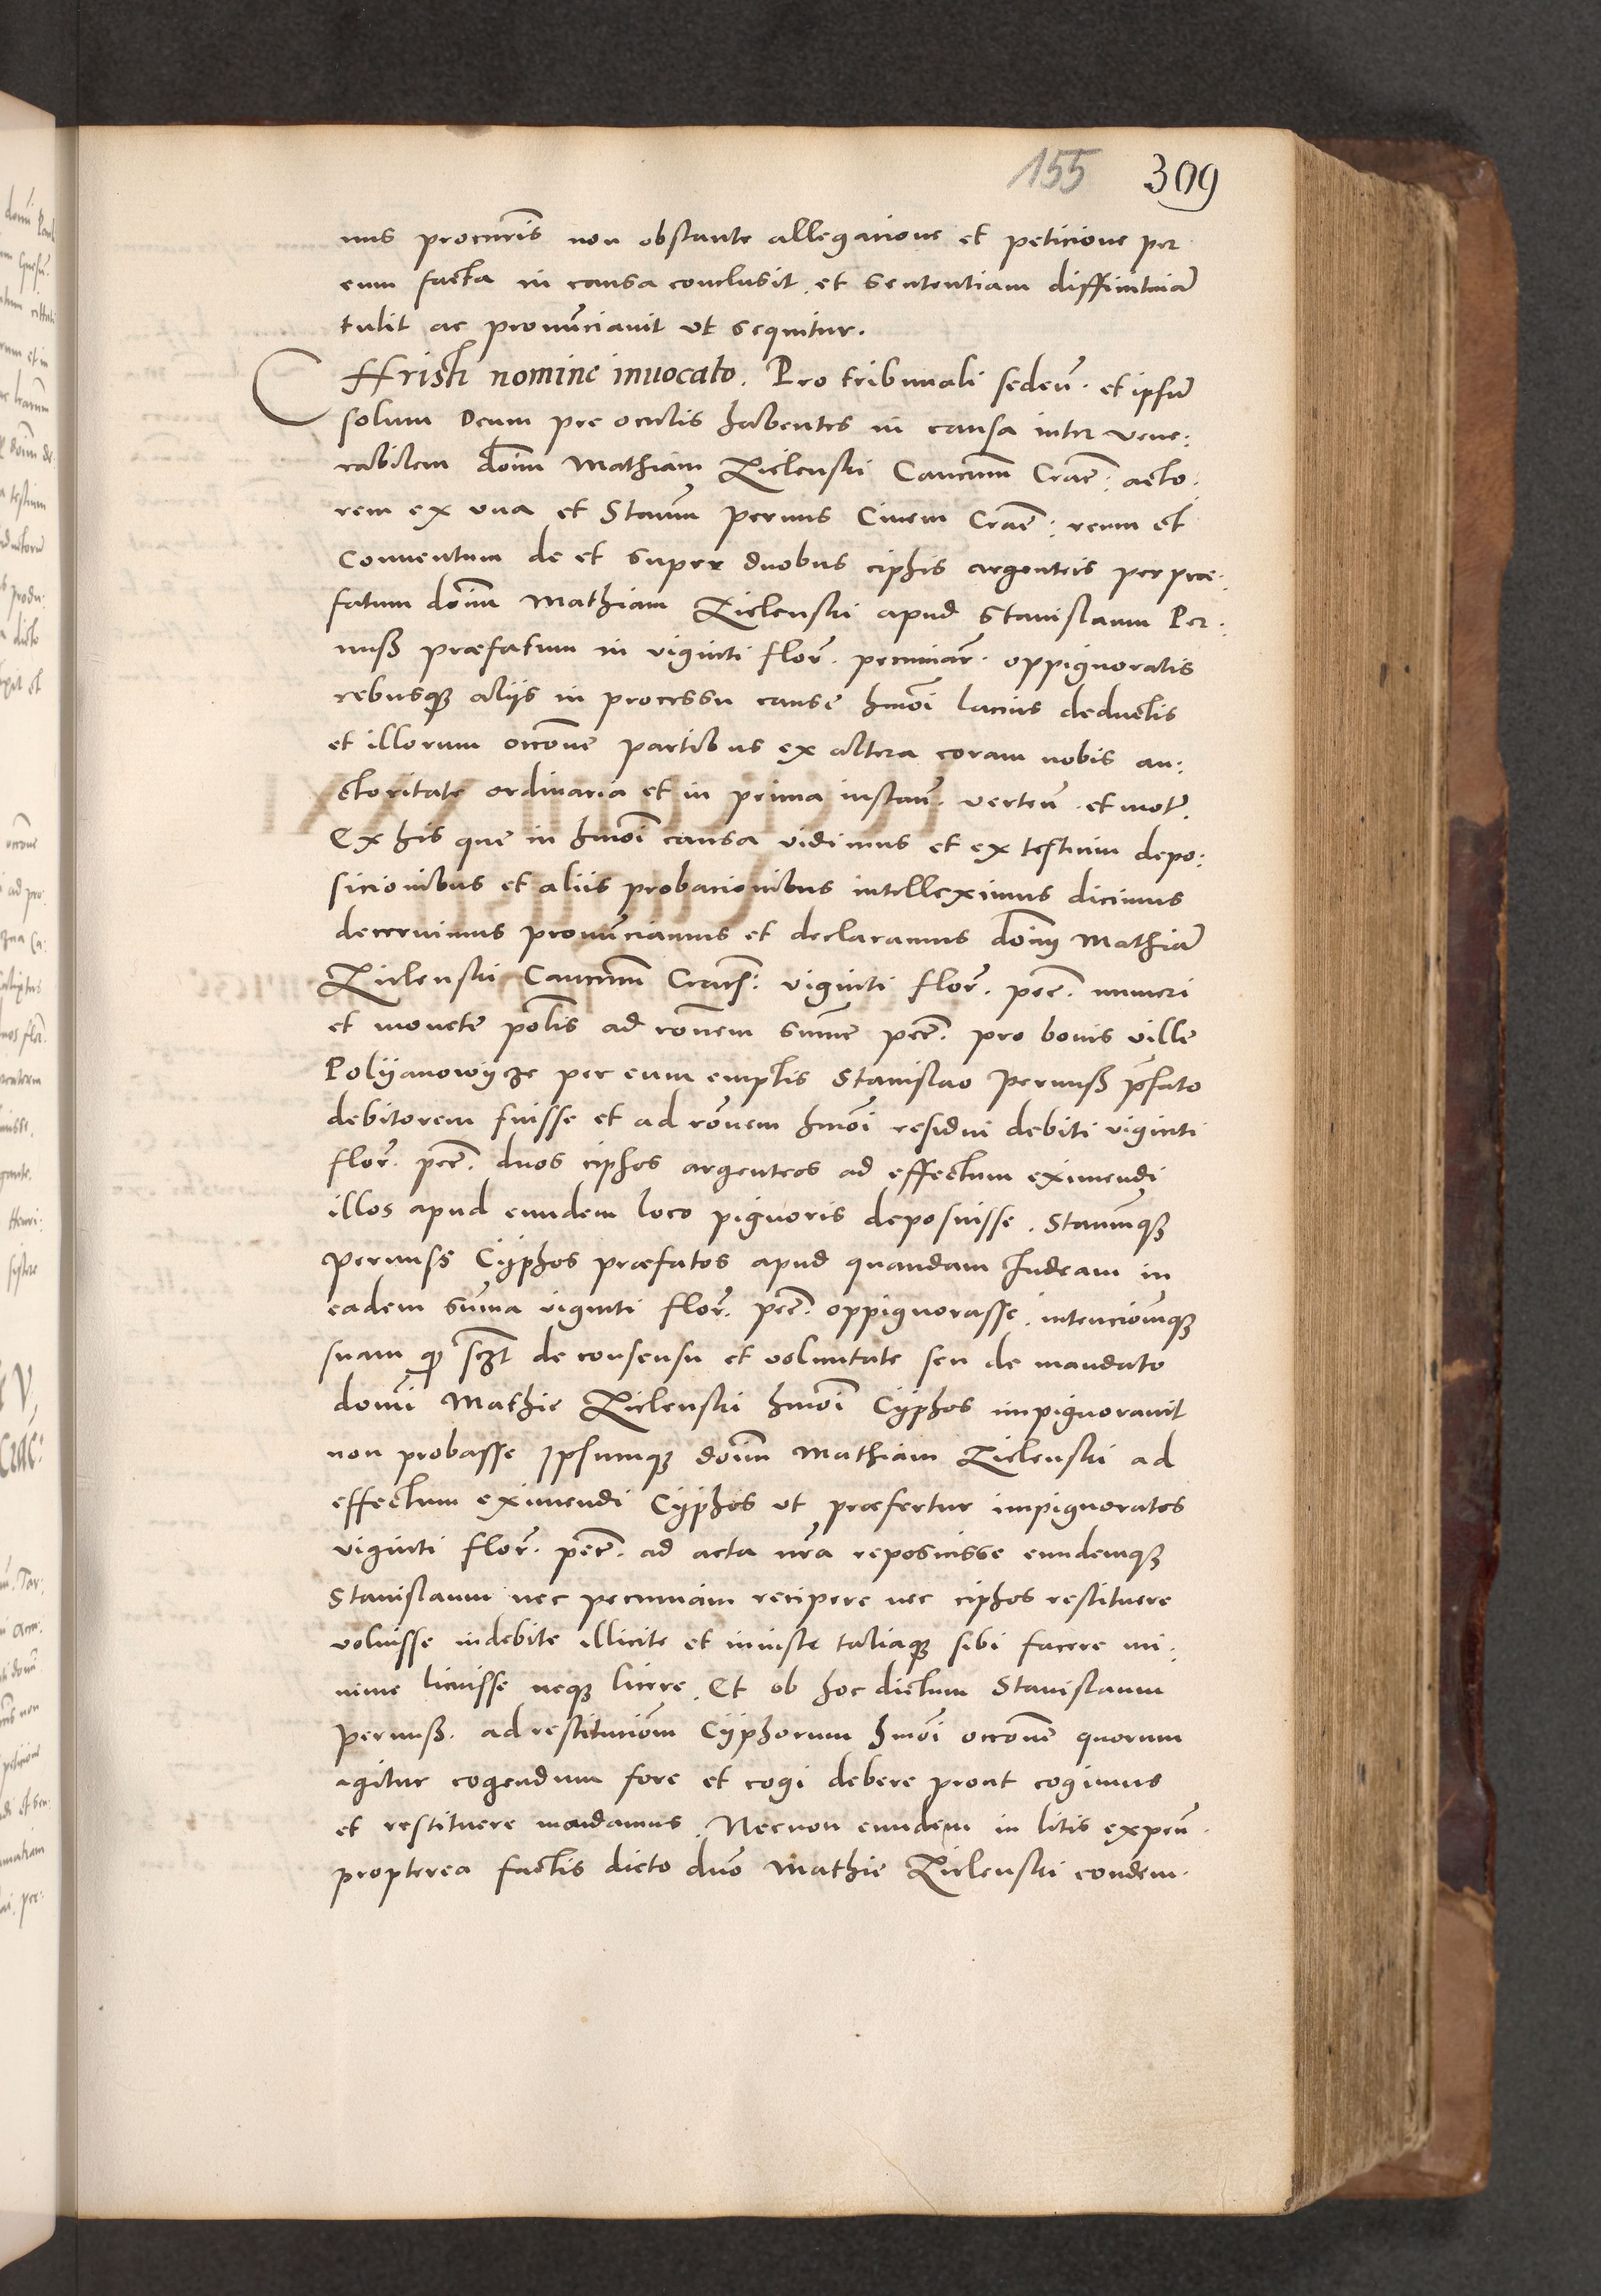 155 309
nus procur̃is non obstante allegacione et peticione per
eum facta in causa conclusit et sententiam diffinitiuã
tulit ac pronũciauit ut sequitur.
CHristi nomine inuocato. Pro tribunali sedeñ. et ipsũ
solum Deum pre oculis habentes in causa inter vene:
rabilem dom̃ Mathiam Zielenski Canc̃um Crac̃: acto.
rem ex una et Stanm̃ pernus Ciuem Crac̃: reum et
Conuentum de et super duobus ciphis argenteis per præ.
fatum dom̃ Mathiam Zielenski apud Stanislaum Per.
nuß præfatum in viginti flor̃. pecuniar̃. oppignoratis
rebusqȝ aliis in processu cause hmõi lacius deductis
et illorum occõne partibus ex altera coram nobis au:
ctoritate ordinaria et in prima instañ. verteñ. et mot̃.
Ex his que in hmõi causa vidimus et ex testium depo:
sicionibus et aliis probacionibus intelleximus dicimus
decernimus pronũciamus et declaramus dom̃ Mathiã
Zielenski Canc̃um Crac̃: viginti flor̃. pec̃. numeri
et monete pol̃is ad rõnem sum̃e pec̃. pro bonis ville
Polyanowycze per eum emptis Stanislao Pernuß p̃fato
debitorem fuisse et ad rõnem hmõi residui debiti viginti
flor̃. pec̃. duos ciphos argenteos ad effectum eximendi
illos apud eundem loco pignoris deposuisse. Stanm̃qȝ
pernuss Cyphos præfatos apud quandam Iudeam in
eadem sum̃a viginti flor̃. pec̃. oppignorasse. intencionẽqȝ
suam qȝ sczt de consensu et voluntate seu de mandato
domi Mathie Zielenski hmõi Cyphos impignorauit
non probasse Ipsumqȝ dom̃ Mathiam Zielenski ad
effectum eximendi Cyphos ut præfertur impignoratos
viginti flor̃. pec̃. ad acta nr̃a reposuisse eundemqȝ
Stanislaum nec pecuniam recipere nec ciphos restituere
voluisse indebite illicite et iniuste taliaqȝ sibi facere mi:
nime licuisse neqȝ licere. Et ob hoc dictum Stanislaum
pernuß. ad restitucion̄em Cyphorum hmõi occõne quorum
agitur cogendum fore et cogi debere prout cogimus
et restituere mandamus. Necnon eundem in litis expeñ.
propterea factis dicto dño Mathie Zielenski condem.